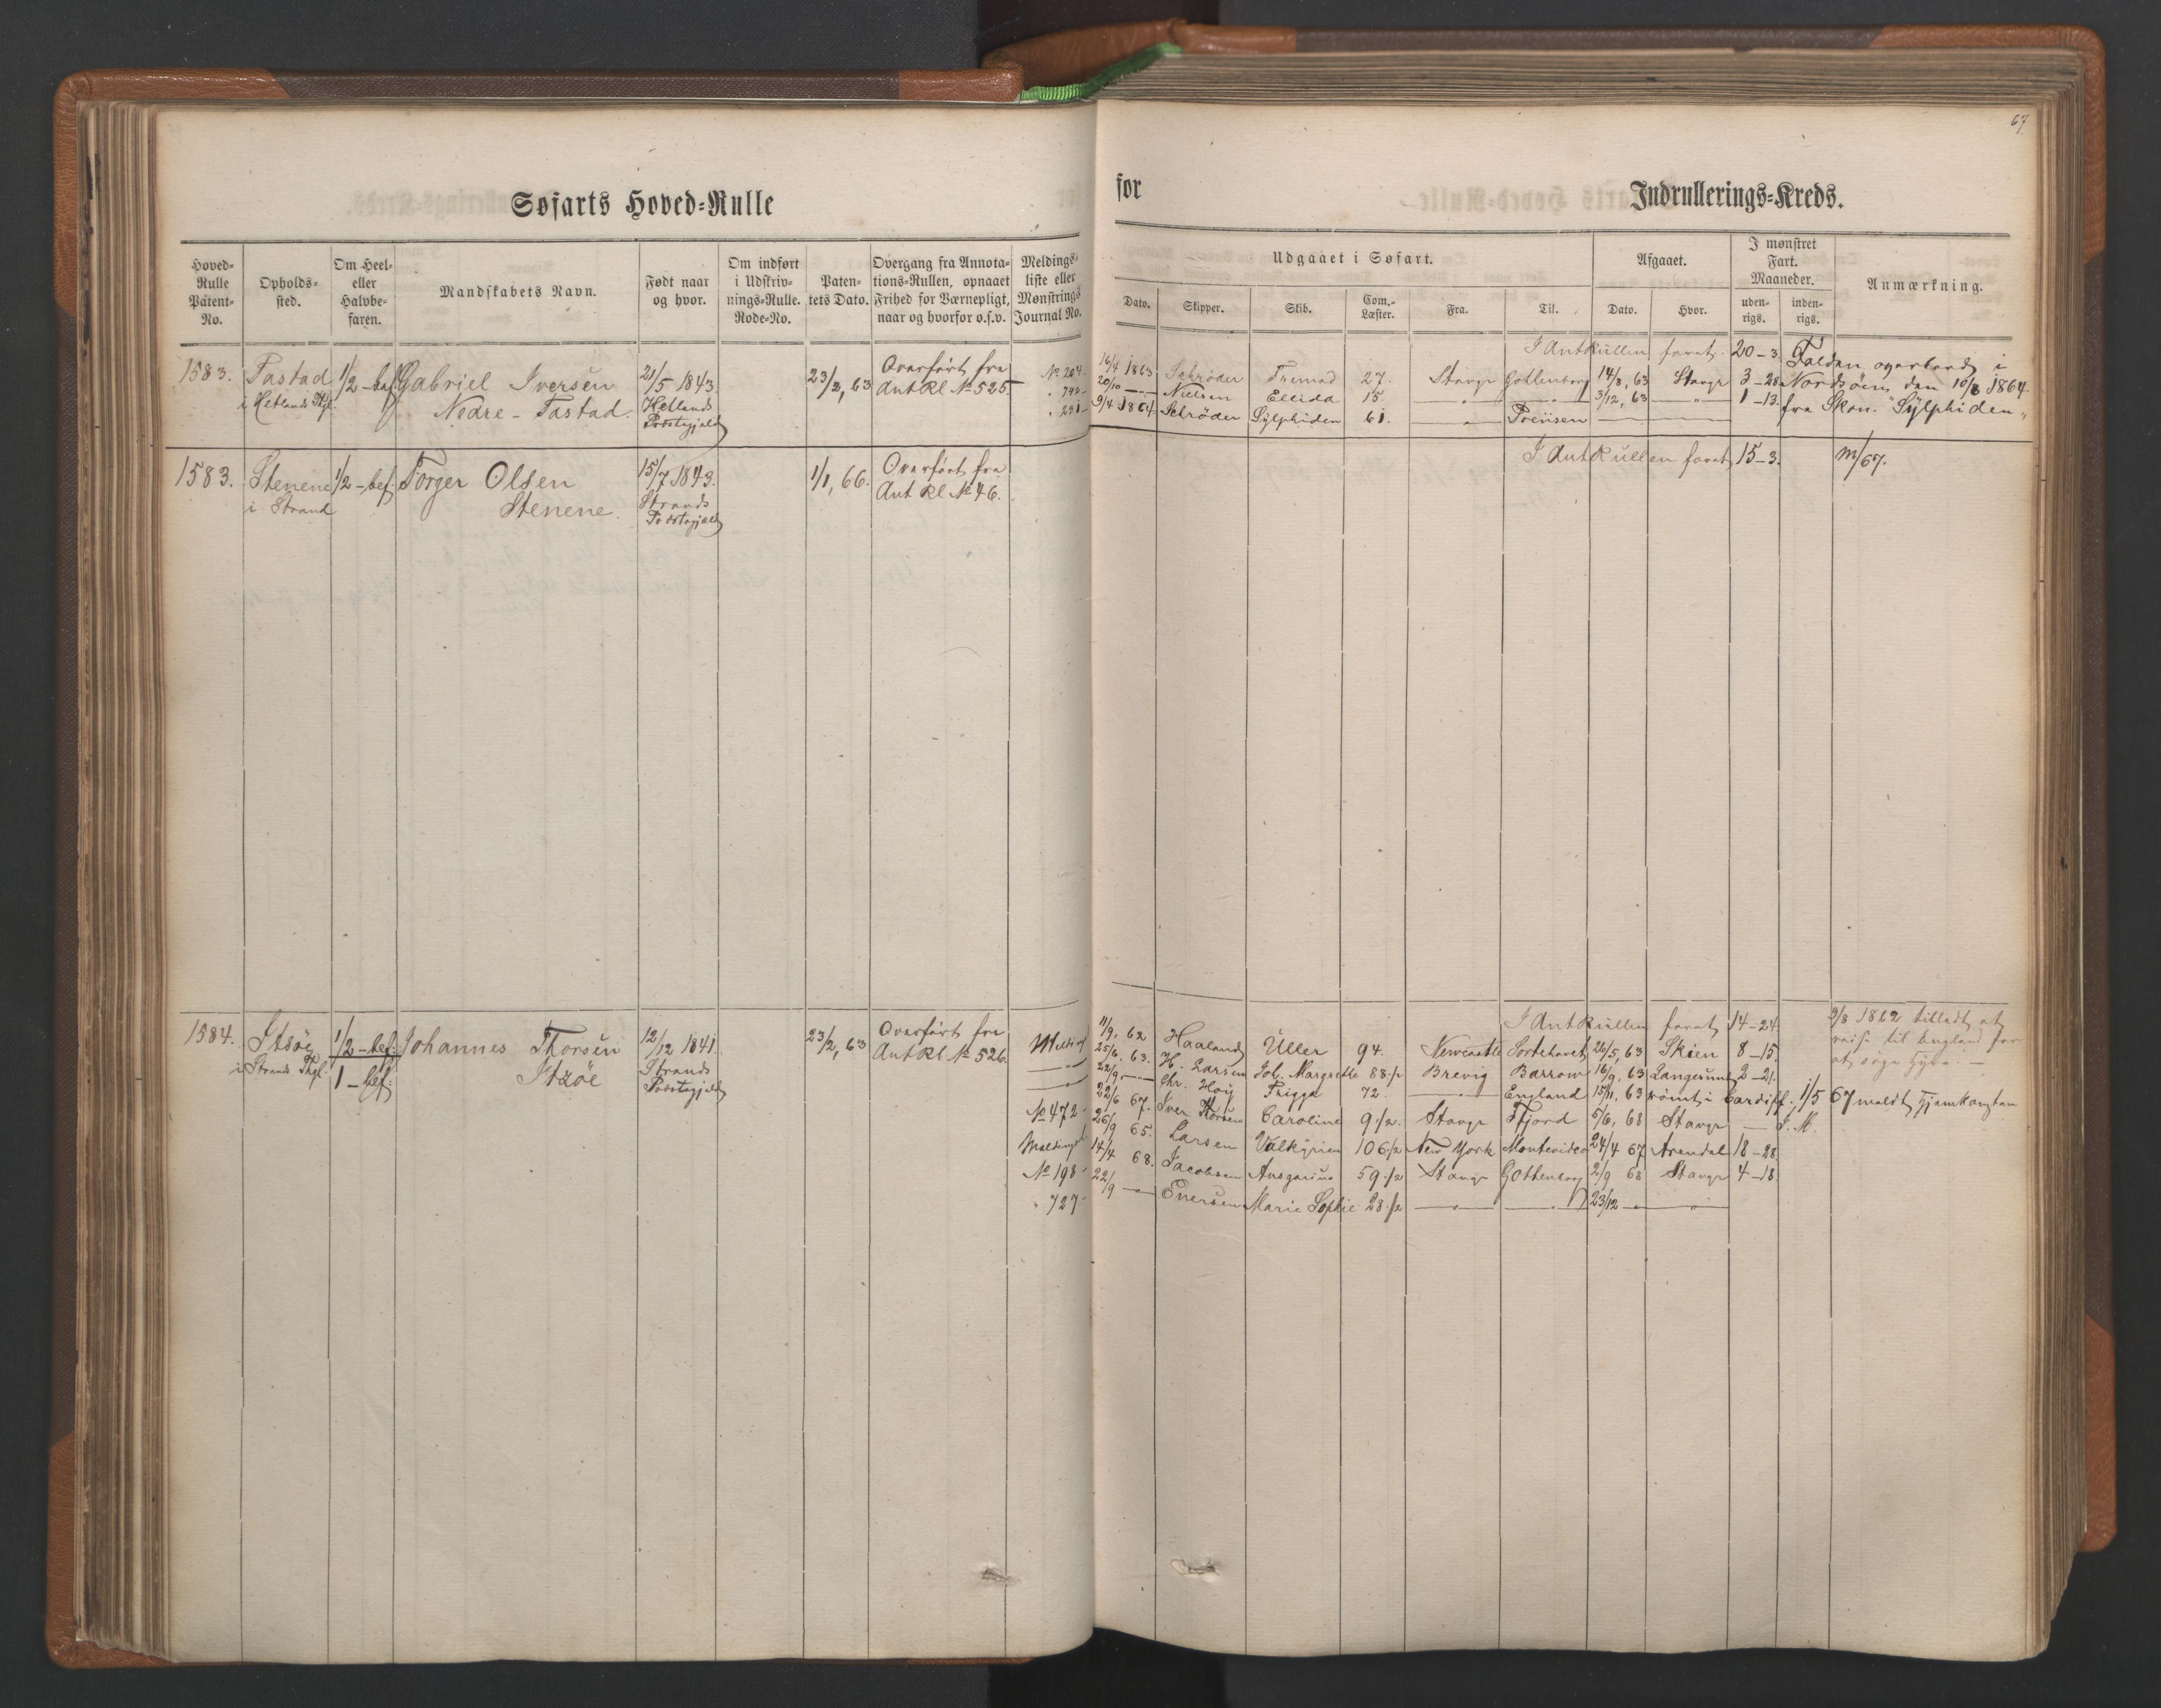 67
Søfarts Hoved=Rulle
for
Indrullerings=Kreds.
Hoved=
Rulle
Patent=
No.
Opholds=
sted.
Om Heel=
eller
Halvbe=
faren.
Mandskabets Navn.
Født naar
og hvor.
Om indført
i Udskriv=
nings=Rulle.
Rode=No.
Paten=
tets Dato.
Overgang fra Annota=
tions=Rullen, opnaaet
Frihed for Værnepligt,
naar og hvorfor o.s.v.
Meldings=
liste eller
Mønstrings
Journal No.
Udgaaet i Søfart.
Dato.
Skipper.
Skib.
Com.=
Læster.
Fra.
Til.
Afgaaet.
Dato.
Hvor.
I mønstret
Fart.
Maaneder.
uden=
rigs.
inden=
rigs.
Anmærkning.
1583.
Tastad
i Hetlands Thgl.
1/2 - bef.
Gabriel Iversen
Nedre - Tastad.
21/5 1843.
Hetlands
Præstegjeld
23/2, 63
Overført fra
Ant Rl. No 525.
I Ant Rullen faret 20-3.
No 204. 16/4 1863 Schrøder 27. Stavgr Gottenborg 14/8, 63 Stavgr 3-28
" 742- 20/10 — Nielsen Ellida 15. — " — — " — 3/12, 63 — " — 1-13.
" 231- 9/4 1864. Schrøder Sylphiden 61. — " — Preüsen
Falden overbord i
Nordsøen, den 10/8 1864
fra Skon. "Sylphiden"
1583.
Stenene
i Strand
1/2 - bef.
Torger Olsen
Stenene.
15/7 1843.
Strands
Præstegjeld
1/1, 66.
Overført fra
Ant Rl No 46.
I Ant Rullen faret 15-3.
m/67.
1584.
i Strands Thgl.
1/2 - bef.
1 - bef.
Johannes Thorsen
12/12 1841.
Strands
Præstegjeld
23/2, 63
Overført fra
Ant Rl No 526.
I Ant Rullen faret 14-24
Melding 11/9, 62 Haaland Uller 94. Newcastle Sortehavet 26/5, 63 Skien 8-15.
— " — 25/6. 63. H. Larsen Joh. Margrethe 88 1/2 Brevig Barrow 16/9, 63 Langesund 2-21.
— " — 22/9 — Chr. Høy Frigga 72. — " — England 15/11, 63 rømt i Cardiff. 1/5 67 meldt hjemkomsten
No 472- 22/6 67. Iver Thorsen Caroline 9 1/2. Stavgr Ffjord 5/6, 68 Stavgr — I. M.
Melding 26/9 65. Larsen Valkyrien 106 1/2 New York Montevideo 24/4 67 Arendal 18-28
No 198- 14/4 68. Jacobsen Ansgarius 59 1/2 Stavgr Gottenborg 2/9 68 Stavgr 4-18.
" 727- 22/9 — Eversen Marie Sophie 28 1/2 — " — — " — 23/12 — — " —
9/8 1862 tilladt at
reise til England for
at søge Hyre. —